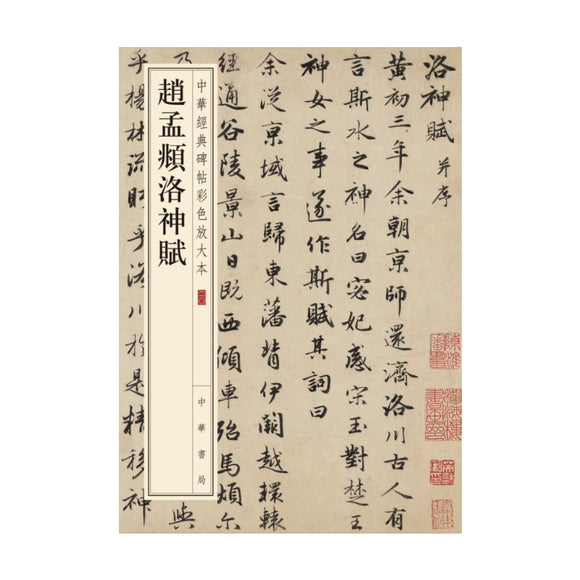 洛神賦 并序
黃初三年余朝京師還濟洛川古人有
言斯水之神名曰宓妃感宋玉對楚王
神女之事遂作斯賦其詞曰
余從京域言歸東藩背伊闕越轘轅
經通谷陵景山日既西傾車殆馬煩尔
中華經典碑帖彩色放大本 二〇
中華書局
趙孟頫洛神賦
乃
與
乎楊林流眄乎洛川於是精移神